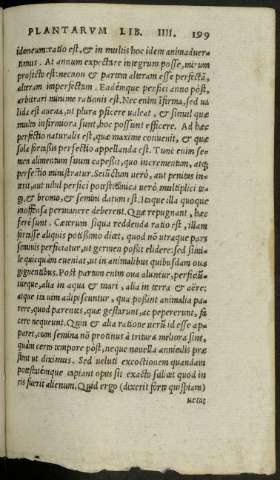 PLANTARVM LIB. IIII. 199
idoneum: ratio est, & in multis hoc idem animaduer
timus. At annum expectare integrum posse, mirum
profecto est: necnon & partem alteram esse perfectā,
alteram imperfectam. Eadémque perfici anno pòst,
arbitrari minime rationis est. Nec enim infirma, sed ua
lida est auena, ut plura perficere ualeat, & simul quæ
multo infirmiora sunt, hoc possunt efficere. Ad hæc
perfectio naturalis est, quæ maxime conuenit, & quæ
sola fortassis perfectio appellanda est. Tunc enim se-
men alimentum suum capescit, quo incrementum, atq;
perfectio ministratur. Seiūctum uerò, aut penitus in-
rit, aut ubi perfici potest
g, & bromo, & semini datum est. Itaque illa quoque
inoffensa permanere deberent. Quæ repugnant, hæc
ferè sunt. Cæterum siqua reddenda ratio est, illam
iurasse aliquis potissimū dicet, quod nō utraque pars
seminis perficiatur, ut germen possit elidere: sed simi-
le quicquam eueniat, ut in animalibus quibusdam oua
gignentibus. Post partum enim oua aluntur, perficiū-
túrque, alia in aqua & mari, alia in terra & aëre:
atque id tum adipiscuntur, qua possint animalia pa-
rere, quod parentes, quæ gestarunt, ac pepererunt, fa
cere nequeunt. Quin & alia ratione uerū id esse ap-
paret, cum semina nō protinus à tritura meliora sint,
quàm certo tempore pòst, neque nouella anniculis præ
stent ut diximus. Sed ueluti excoctionem quandam
potestatémque capiant opus sit exacto
ris fuerit alienum. Quid ergo (dixerit fortè quispiam)
uetat